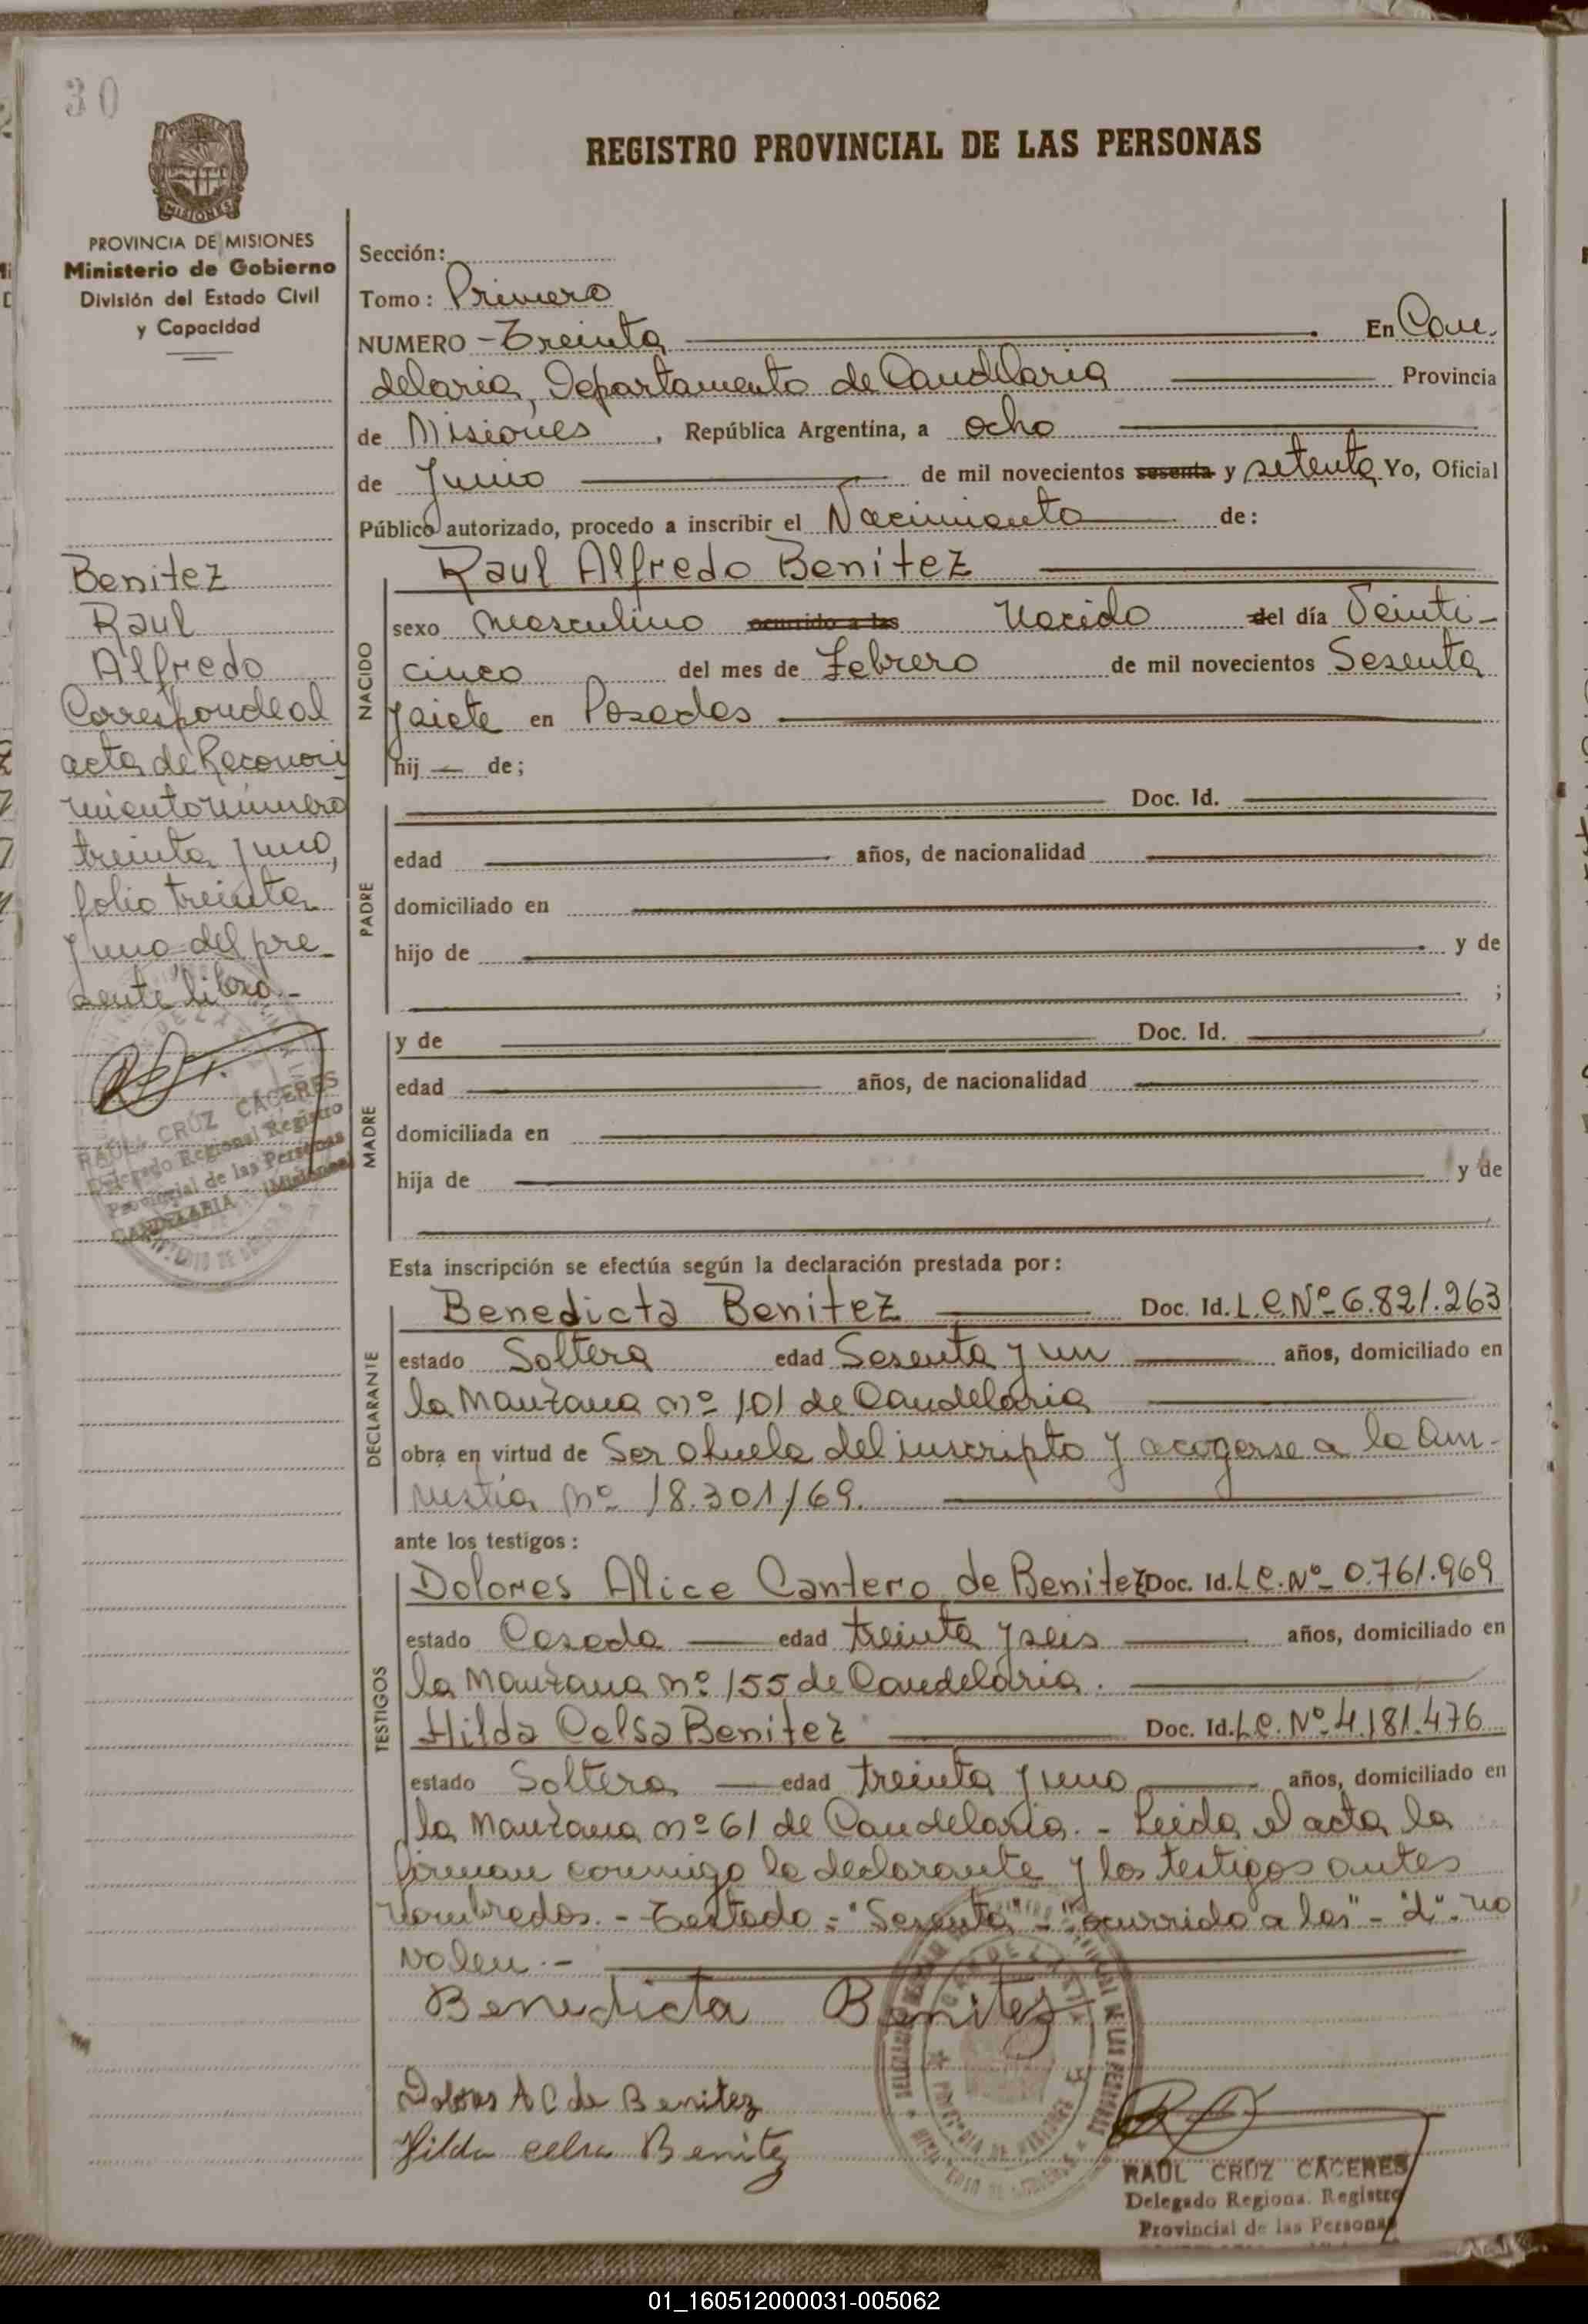 30
PROVINCIA DE MISIONES
Ministerio de Gobierno
División del Estado Civil
y Capacidad
Benitez
Raul
Alfredo
Corresponde al
acta de Reconoci
miento número
treinta y uno,
folio treinta
y uno del pre_
sente libro.-
RAUL CRUZ CACERES
Delegado Regional Registro
Provincial de las Personas
CANDELARIA (Misiones)
REGISTRO PROVINCIAL DE LAS PERSONAS
Sección:
Tomo: Primero
NUMERO - Treinta En Can.
delaria, Departamento de Candelaria Provincia
de Misiones, República Argentina, a ocho
de Junio de mil novecientos sesenta y setenta Yo, Oficial
Público autorizado, procedo a inscribir el Nacimiento de:
Raul Alfredo Benitez
NACIDO
sexo masculino ocurrido a las Nacido del día Veinti-
cinco del mes de Febrero de mil novecientos Sesenta
y siete en Posadas
hij — de;
PADRE
Doc. Id.
edad años, de nacionalidad
domiciliado en
hijo de y de
;
MADRE
y de Doc. Id.
edad años, de nacionalidad
domiciliada en
hija de y de
Esta inscripción se efectúa según la declaración prestada por:
DECLARANTE
Benedicta Benitez Doc. Id. L.C. Nº 6.821.263
estado Soltera edad Sesenta y un años, domiciliado en
la Manzana nº 101 de Candelaria
obra en virtud de Ser abuela del inscripto y acogerse a la Am-
nistía nº 18.301/69.
ante los testigos:
TESTIGOS
Dolores Alice Cantero de Benitez Doc. Id. L.C. Nº 0.761.969
estado Casada edad treinta y seis años, domiciliado en
la Manzana nº 155 de Candelaria.
Hilda Celsa Benitez Doc. Id. L.C. Nº 4.181.476
estado Soltera edad treinta y uno años, domiciliado en
la Manzana nº 61 de Candelaria. - Leida el acta la
firman conmigo la declarante y los testigos antes
nombrados. - Testado = "Sesenta" - "ocurrido a las" - "d" - no
valen.-
Benedicta Benitez
Dolores A C de Benitez
Hilda celsa Benitez
RAUL CRUZ CACERES
Delegado Regional Registro
Provincial de las Personas
01_160512000031-005062